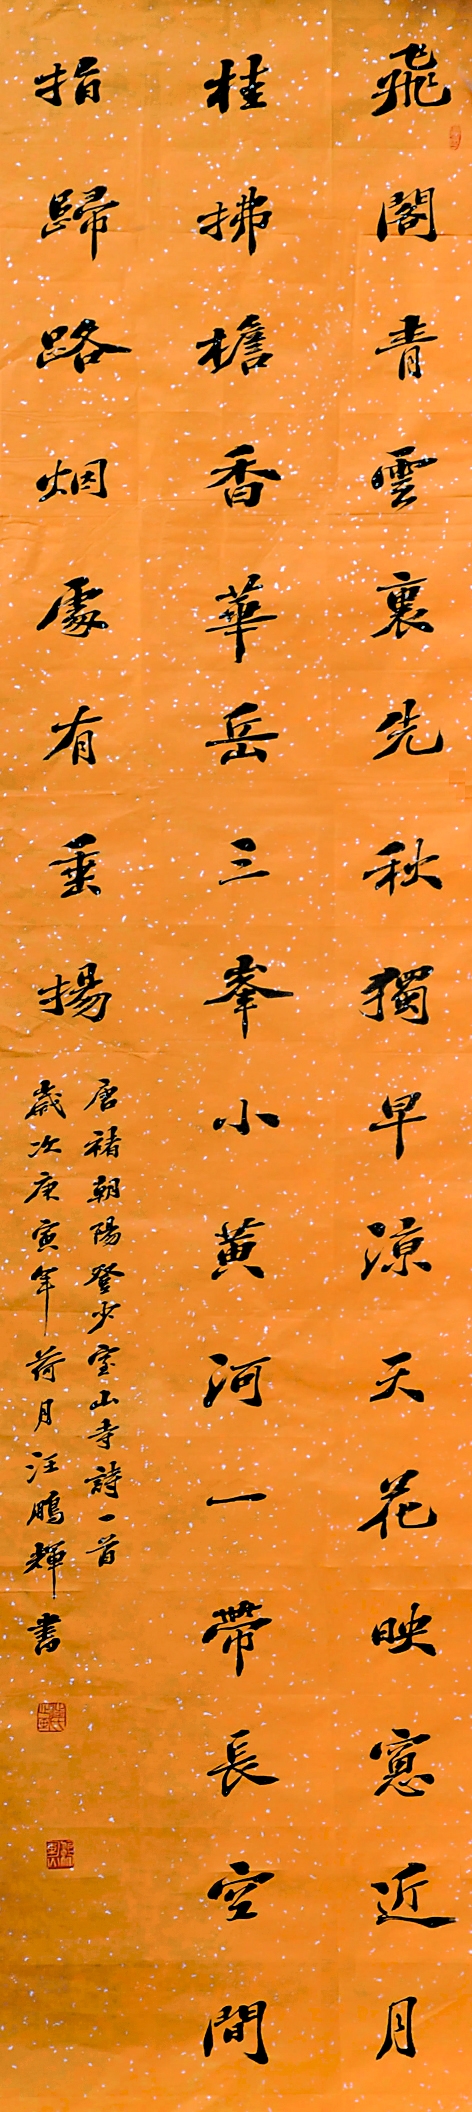 飛閣青雲裏先秋獨早涼天花映窻近月
桂拂檐香華岳三峯小黄河一帶長空間
指歸路烟處有垂揚
唐褚朝陽登少室山寺詩一首
歲次庚寅年荷月汪鵬輝書